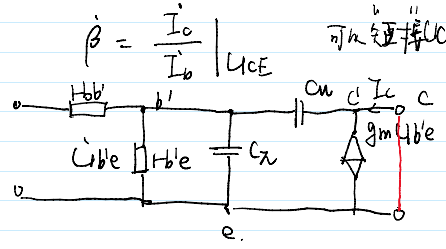 β̇ = İc / İb | UCE
可以短接UC
rbb' b' Cu C' Ic C
U̇b'e rb'e Cπ gmUb'e
e.